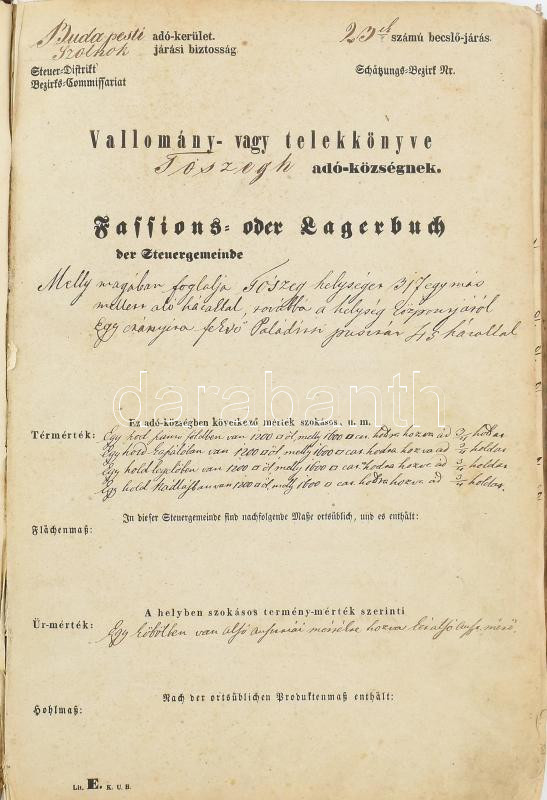 Budapesti adó-kerület.
Szolnok járási biztosság.
23ik számú becslő-járás.
Steuer-Distrikt
Bezirks-Commissariat
Schätzungs-Bezirk Nr.
Vallomány- vagy telekkönyve
Tószegh adó-községnek.
Fassions- oder Lagerbuch
der Steuergemeinde
Melly magában foglalja Tószeg helységet 317 egymás
mellett álló házattal, továbbá a helység központjától
Egy eső Paládits pusztát 45 házattal
darabanth
Ez adó-községben következő mérték szokásos, u. m.
Térmérték: Egy hold földben van 1200 □ öl, melly 1600 □ hozva ad 3/4 holdat
Egy hold van 1200 □ öl, melly 1600 □ hozva ad 3/4 holdat
Egy hold legelőben van 1200 □ öl, melly 1600 □ hozva ad 3/4 holdat
Egy hold van 1200 □ öl, melly 1600 □ hozva ad 3/4 holdat
In dieser Steuergemeinde sind nachfolgende Maße ortsüblich, und es enthält:
Flächenmaß:
A helyben szokásos termény-mérték szerinti
Űr-mérték: Egy köbölben van alsó hozva alsó
Nach der ortsüblichen Produktenmaß enthält:
Hohlmaß:
Lit. E. K. U. B.